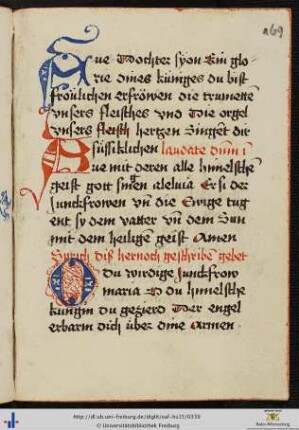 169
Aue Tochter syon Ein glo-
rie dines küniges du bist
fröulichen erfröwen die trumetten
vnsers fleisches vnd die orgel
vnsers fleisch hertzen Singet dir
süssiklichen laudate dnm i
Aue mit deren alle himelsche
geist gott alleluia Er si der
Junckfrowen vn die Ewige tug
ent sy dem vatter vn dem Sun
mit dem heiligē geist Amen
Sprich diß hernoch geschribē gebet
O du wirdige Junckfrow
maria O du himelsche
künigin du gezierd Der engel
erbarm dich über dine Armen
http://dl.ub.uni-freiburg.de/diglit/sol-hs15/0339
© Universitätsbibliothek Freiburg
Baden-Württemberg